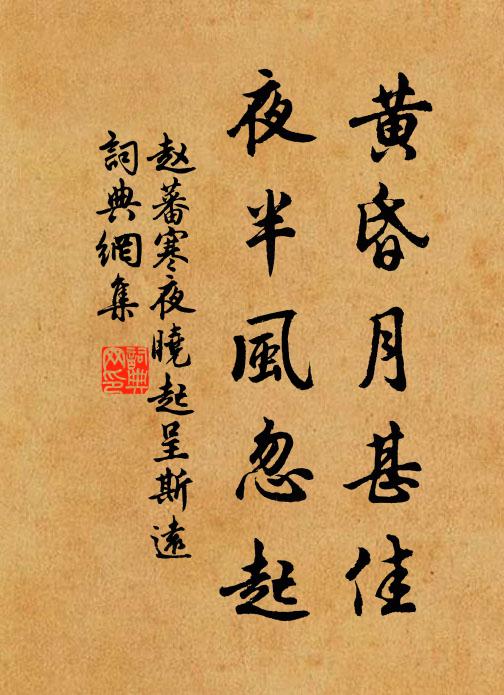 黃昏月甚佳
夜半風忽起
赵蕃寒夜曉起呈斯遠
詞典網集
詞典网印